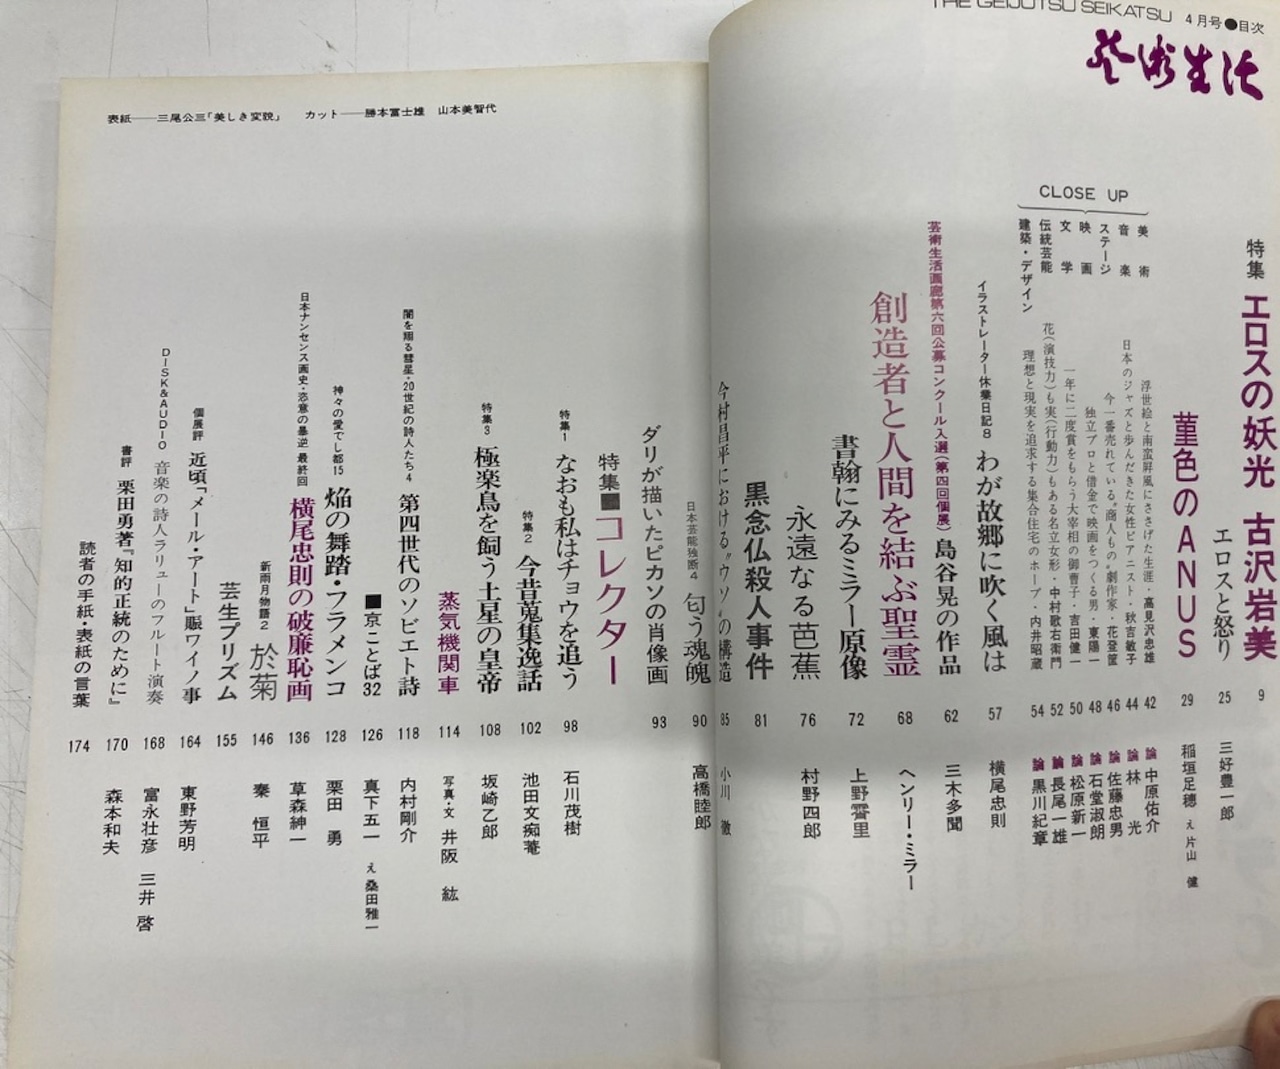 THE GEIJUTSU SEIKATSU 4月号●目次
藝術生活
特集 エロスの妖光 古沢岩美 9
エロスと怒り 25 三好豊一郎
菫色のANUS 29 稲垣足穂 え 片山 健
CLOSE UP
美術 浮世絵と南蛮屏風にささげた生涯・高見沢忠雄 42 論 中原佑介
音楽 日本のジャズと歩んだきた女性ピアニスト・秋吉敏子 44 論 林 光
ステージ 今一番売れている“商人もの”劇作家・花登筐 46 論 佐藤忠男
映画 独立プロと借金で映画をつくる男・東陽一 48 論 石堂淑朗
文学 一年に二度賞をもらう大宰相の御曹子・吉田健一 50 論 松原新一
伝統芸能 花(演技力)も実(行動力)もある名立女形・中村歌右衛門 52 論 長尾一雄
建築・デザイン 理想と現実を追求する集合住宅のホープ・内井昭蔵 54 論 黒川紀章
イラストレーター休業日記8 わが故郷に吹く風は 57 横尾忠則
芸術生活画廊第六回公募コンクール入選(第四回個展) 島谷晃の作品 62 三木多聞
創造者と人間を結ぶ聖霊 68 ヘンリー・ミラー
書翰にみるミラー原像 72 上野霄里
永遠なる芭蕉 76 村野四郎
黒念仏殺人事件 81
今村昌平における“ウソ”の構造 85 小川 徹
日本芸能独断4 匂う魂魄 90 高橋睦郎
ダリが描いたピカソの肖像画 93
特集■コレクター
特集1 なおも私はチョウを追う 98 石川茂樹
特集2 今昔蒐集逸話 102 池田文痴菴
特集3 極楽鳥を飼う土星の皇帝 108 坂崎乙郎
蒸気機関車 114 写真・文 井阪 紘
闇を翔る彗星・20世紀の詩人たち4 第四世代のソビエト詩 118 内村剛介
■京ことば32 126 真下五一 え 桑田雅一
神々の愛でし都15 焔の舞踏・フラメンコ 128 栗田 勇
日本ナンセンス画史・恣意の暴逆 最終回 横尾忠則の破廉恥画 136 草森紳一
新雨月物語2 於菊 146 秦 恒平
芸生プリズム 155
個展評 近頃「メール・アート」賑ワイノ事 164 東野芳明
DISK&AUDIO 音楽の詩人ラリューのフルート演奏 168 富永壮彦 三井 啓
書評 栗田勇著『知的正統のために』 170 森本和夫
読者の手紙・表紙の言葉 174
表紙──三尾公三「美しき変貌」 カット──勝本冨士雄 山本美智代